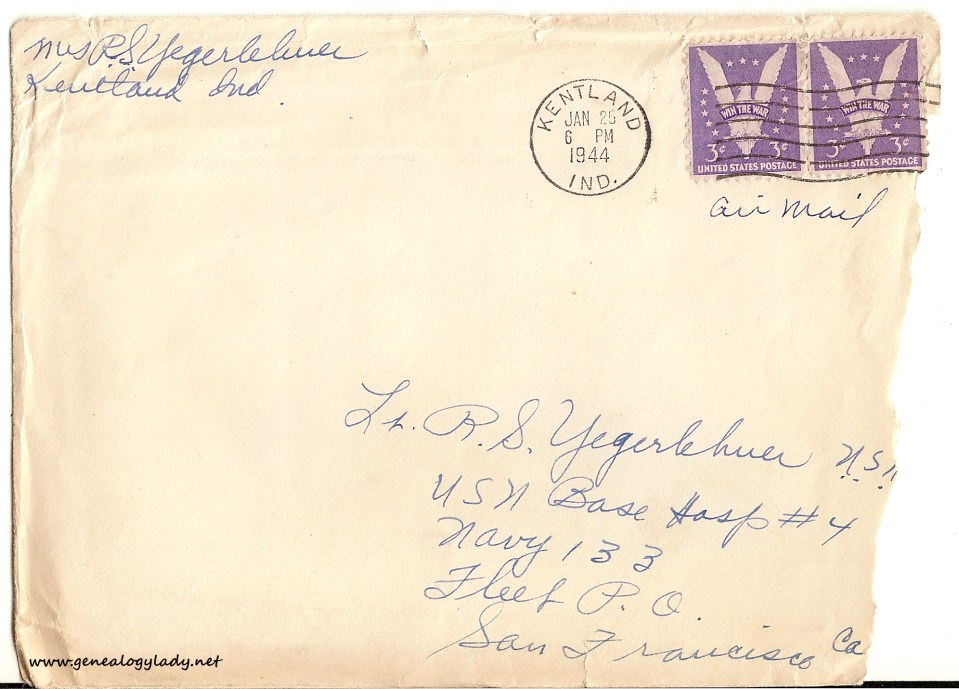 Mrs R.S. Yegerlehner
Kentland Ind.
KENTLAND
JAN 25
6 PM
1944
IND.
WIN THE WAR
3¢ 3¢
UNITED STATES POSTAGE
WIN THE WAR
3¢ 3¢
UNITED STATES POSTAGE
air mail
Lt. R.S. Yegerlehner
USN Base Hosp # 4
Navy 133
Fleet P.O.
San Francisco Ca
www.genealogylady.net